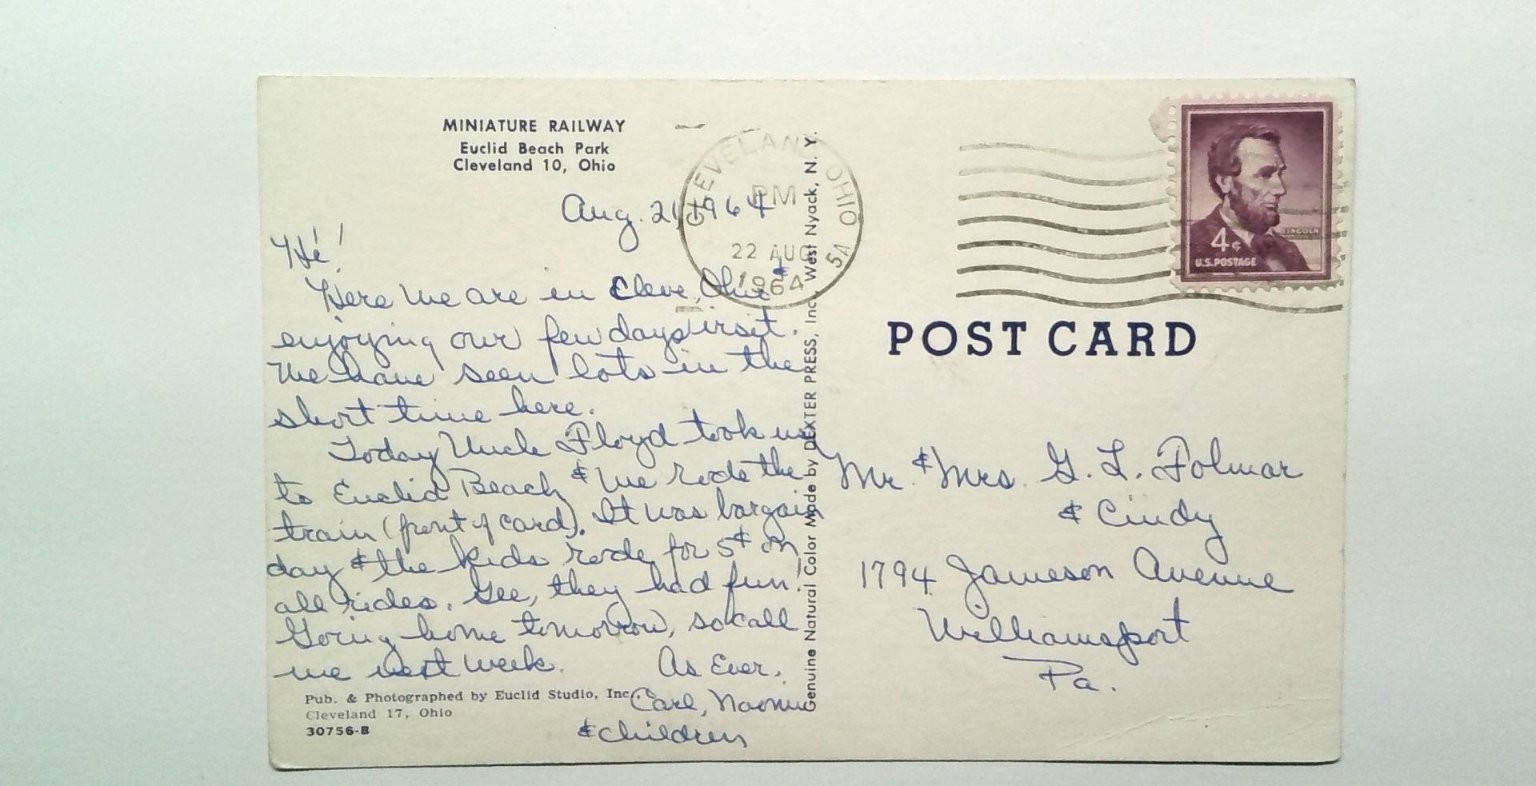 MINIATURE RAILWAY
Euclid Beach Park
Cleveland 10, Ohio
Aug. 21, 1964
Hi!
Here we are in Cleve, Ohio &
enjoying our few days visit.
We have seen lots in the
short time here.
Today Uncle Floyd took us
to Euclid Beach & we rode the
train (front of card). It was bargain
day & the kids rode for 5¢ on
all rides. Gee, they had fun!
Going home tomorrow, so call
me next week.
As Ever,
Carl, Naomi
& children
Pub. & Photographed by Euclid Studio, Inc.,
Cleveland 17, Ohio
30756-B
Genuine Natural Color Made by DEXTER PRESS, Inc., West Nyack, N. Y.
CLEVELAND OHIO
PM
22 AUG
1964
5A
LINCOLN
4¢
U.S. POSTAGE
POST CARD
Mr. & Mrs. G. L. Folmar
& Cindy
1794 Jameson Avenue
Williamsport
Pa.